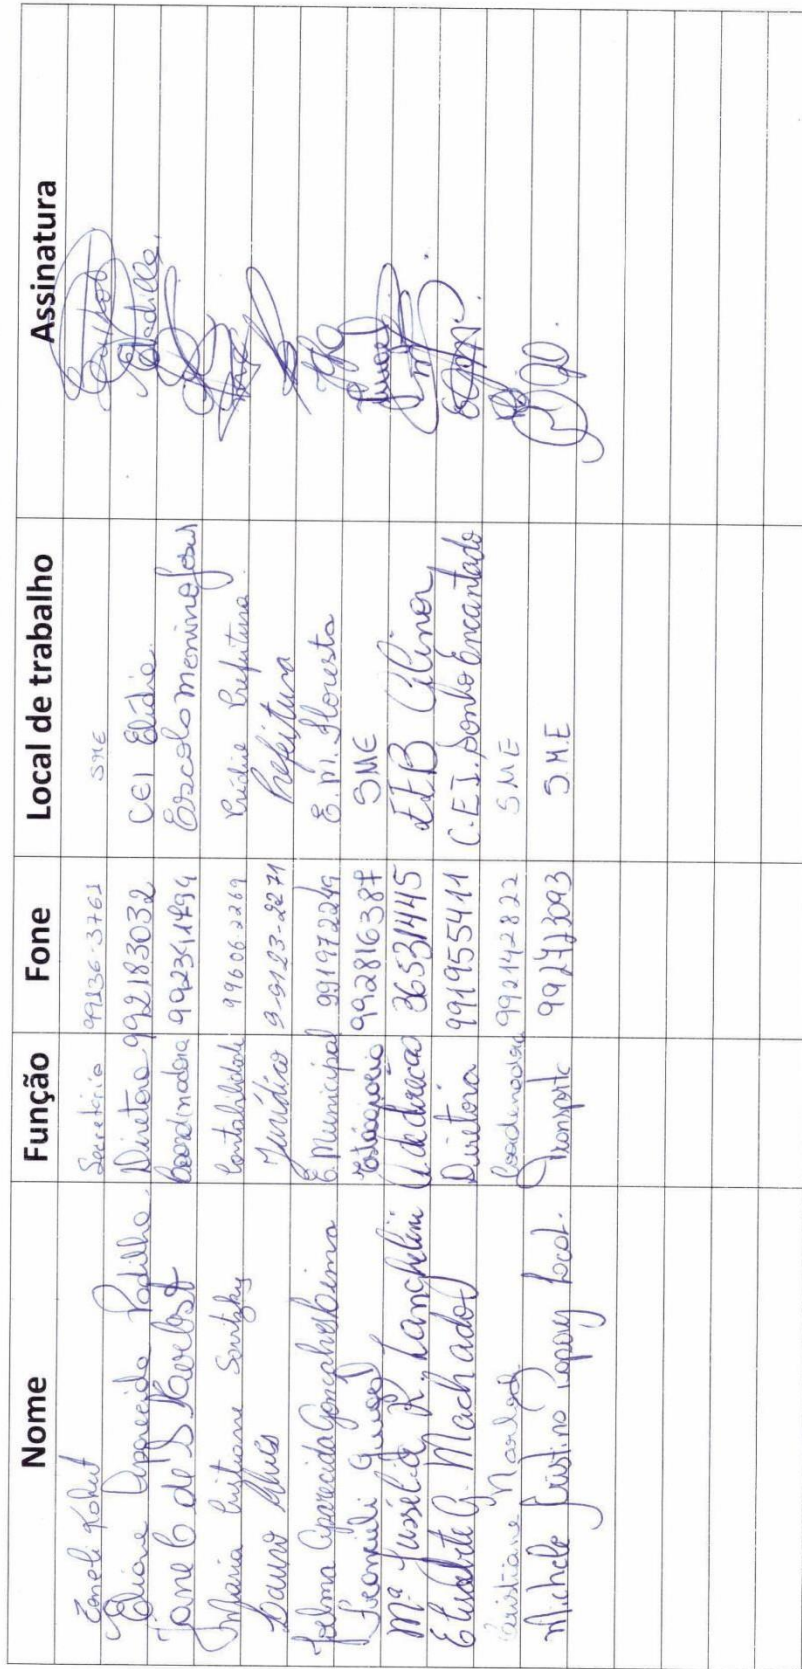 Nome Função Fone Local de trabalho Assinatura
Zoneli Kohut Secretária 99136-3761 SME
Eliane Aparecida Padilha Diretora 992183032 CEI Elidia
Jane C de S Kerbst Coordenadora 992341494 Escola menino Jesus
Maria Cristiane Contabilidade 996062269 Prédio Prefeitura
Lauro Alves Jurídico 9-9123-2271 Prefeitura
Aparecida Gonçalves Lima E. Municipal 991972249 E. M. Floresta
Estagiário 992816387 SME
Mª Jussélia R. Zanchelini A de direção 36531445 EEB
Elisabete G. Machado Diretora 991955411 C.E.I. Sonho Encantado
Cristiane Coordenadora 992142822 SME
Michele Cristina Transporte 992423093 S.M.E